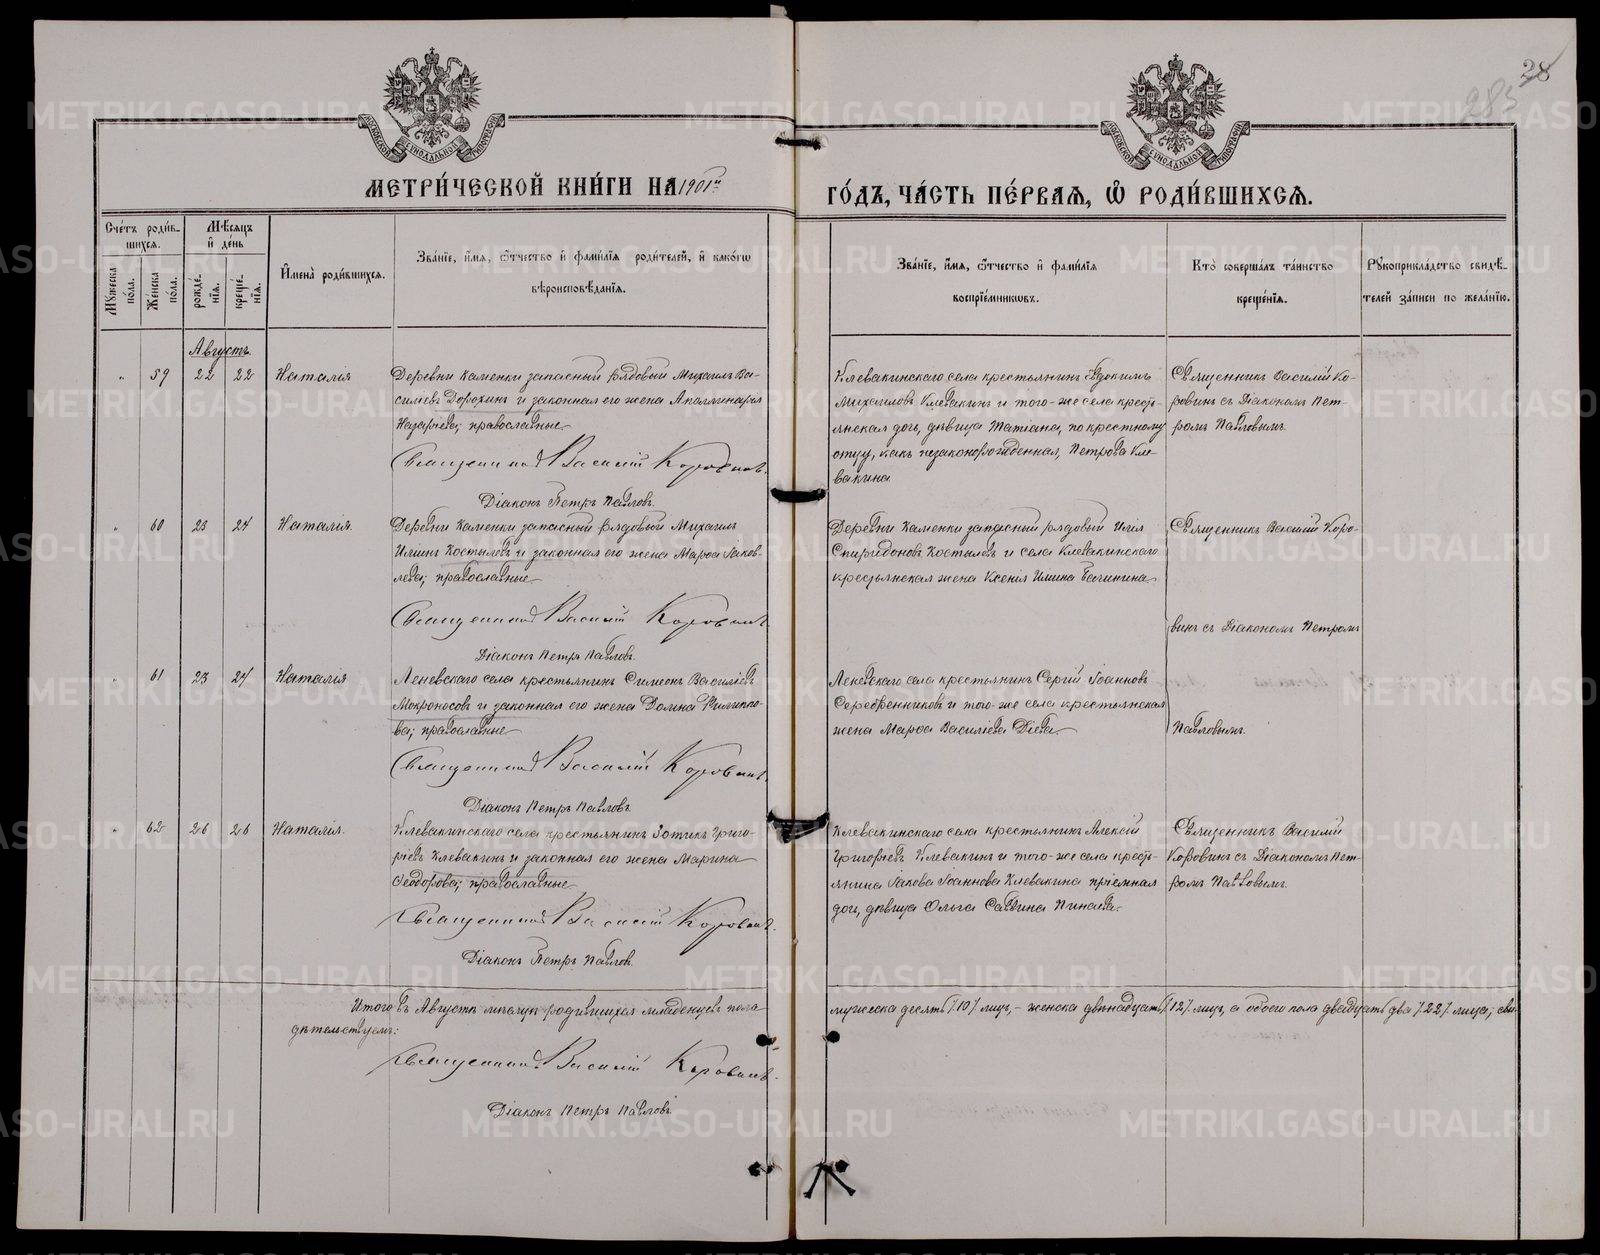 28
285
МОСКОВСКОЙ СУНОДАЛЬНОЙ ТИПОГРАФІИ
МОСКОВСКОЙ СУНОДАЛЬНОЙ ТИПОГРАФІИ
МЕТРИ́ЧЕСКОЙ КНИ́ГИ НА 1901й
ГО́ДЪ, ЧА́СТЬ ПЕ́РВАЯ, Ѡ҆ РОДИ́ВШИХСЯ.
Сче́тъ роди́в-
шихся.
Мѣ́сяцъ
и҆ де́нь
Мꙋ́жеска по́ла.
Же́нска по́ла.
рожде́-
нїя.
креще́-
нїя.
И҆мена̀ роди́вшихся.
Зва́нїе, и҆́мя, ѻ҆́тчество и҆ фами́лїя роди́телей, и҆ како́гѡ
вѣроисповѣ́данїя.
Зва́нїе, и҆́мя, ѻ҆́тчество и҆ фами́лїя
воспрїе́мникѡвъ.
Кто̀ соверша́лъ та́инство
креще́нїя.
Рꙋкоприкла́дство свидѣ́-
телей за́писи по жела́нїю.
Августъ.
" 59 22 22 Наталія
Деревни Каменки запасный рядовый Михаилъ Ва-
сильевъ Дорохинъ и законная его жена Аполлинарія
Назарьева; православные
Священникъ Василій Коровинъ.
Діаконъ Петръ Павловъ.
Клевакинскаго села крестьянинъ Евдокимъ
Михаиловъ Клевакинъ и того-же села кресть-
янская дочь, дѣвица Татіана, по крестному
отцу, какъ незаконорожденная, Петрова Кле-
вакина
Священникъ Василій Ко-
ровинъ съ Діакономъ Пет-
ромъ Павловымъ.
" 60 23 24 Наталія.
Деревни Каменки запасный рядовый Михаилъ
Ильинъ Костылевъ и законная его жена Марѳа Іаков-
лева; православные
Священникъ Василій Коровинъ
Діаконъ Петръ Павловъ.
Деревни Каменки запасный рядовый Илія
Спиридоновъ Костылевъ и села Клевакинскаго
крестьянская жена Ксенія Ильина Бачинина
Священникъ Василій Коро-
винъ съ Діакономъ Петромъ
Павловымъ.
" 61 23 24 Наталія
Леневскаго села крестьянинъ Симеонъ Василіевъ
Мокроносовъ и законная его жена Домна Филиппо-
ва; православные
Священникъ Василій Коровинъ
Діаконъ Петръ Павловъ
Леневскаго села крестьянинъ Сергій Іоанновъ
Серебренниковъ и того-же села крестьянская
жена Марѳа Василіева Діева
" 62 26 26 Наталія.
Клевакинскаго села крестьянинъ Зотикъ Григо-
ріевъ Клевакинъ и законная его жена Марина
Ѳеодорова; православные
Священникъ Василій Коровинъ.
Діаконъ Петръ Павлов.
Клевакинскаго села крестьянинъ Алексій
Григоріевъ Клевакинъ и того-же села кресть-
янина Іакова Іоаннова Клевакина пріемная
дочь, дѣвица Ольга Саввина Пинаева
Священникъ Василій
Коровинъ съ Діакономъ Пет-
ромъ Павловымъ.
Итого въ Августѣ мѣсяцѣ родившихся младенцевъ пола
мужеска десять /10/ лицъ, - женска двѣнадцать /12/ лицъ, а обоего пола двадцать два /22/ лица; сви-
дѣтельствуемъ:
Священникъ Василій Коровинъ.
Діаконъ Петръ Павловъ.
METRIKI.GASO-URAL.RU